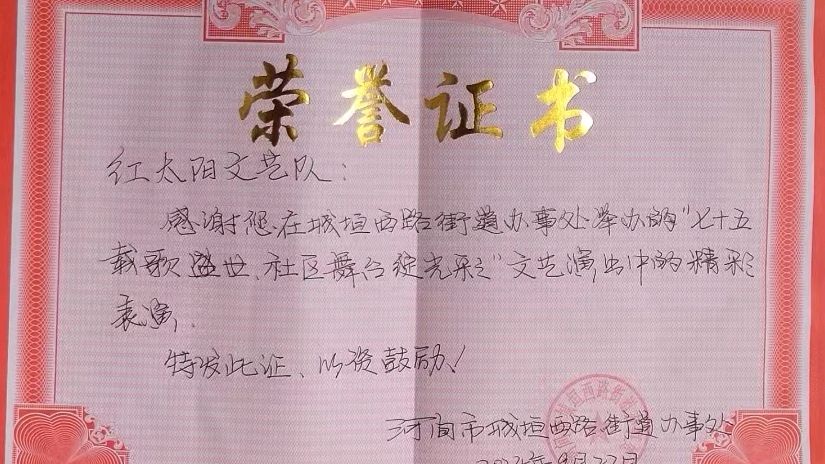 荣誉证书
红太阳文艺队：
感谢您在城垣西路街道办事处举办的"七十五
载歌盛世、社区舞台绽光彩"文艺演出中的精彩
表演，
特发此证、以资鼓励！
河间市城垣西路街道办事处